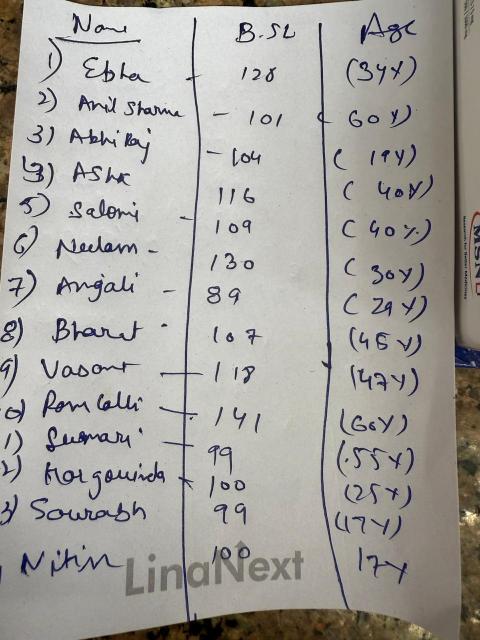 Name B.SL Age
1) Ebha - 128 (34Y)
2) Anil Sharma - 101 (60Y)
3) Abhi Raj - 104 (19Y)
3) Asha 116 (40Y)
5) Salomi - 109 (40Y)
6) Neelam - 130 (30Y)
7) Angali - 89 (29Y)
8) Bharat - 107 (45Y)
9) Vasant - 118 (47Y)
0) 141 (60Y)
1) - 99 (55Y)
2) Hargovinda - 100 (25Y)
3) Sourabh 99 (17Y)
Nitin 100 17Y
LinaNext
MSN